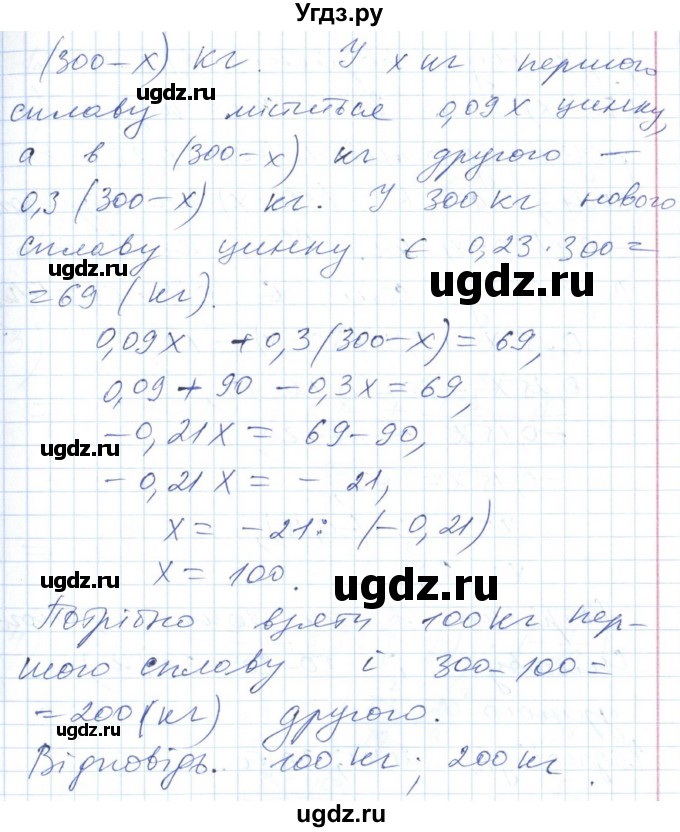 Угдз.ру
(300-x) кг. У x кг першого
сплаву міститься 0,09x цинку,
а в (300-x) кг другого —
0,3(300-x) кг. У 300 кг нового
сплаву цинку є 0,23·300=
ugdz.ru
ugdz.ru
=69 (кг).
0,09x + 0,3(300-x)=69,
0,09+90-0,3x=69,
-0,21x= 69-90,
ugdz.ru
-0,21x= -21,
x= -21:(-0,21)
x=100.
ugdz.ru
ugdz.ru
Потрібно взяти 100 кг пер-
шого сплаву і 300-100=
=200(кг) другого.
ugdz.ru
Відповідь. 100 кг; 200 кг.
ugdz.ru